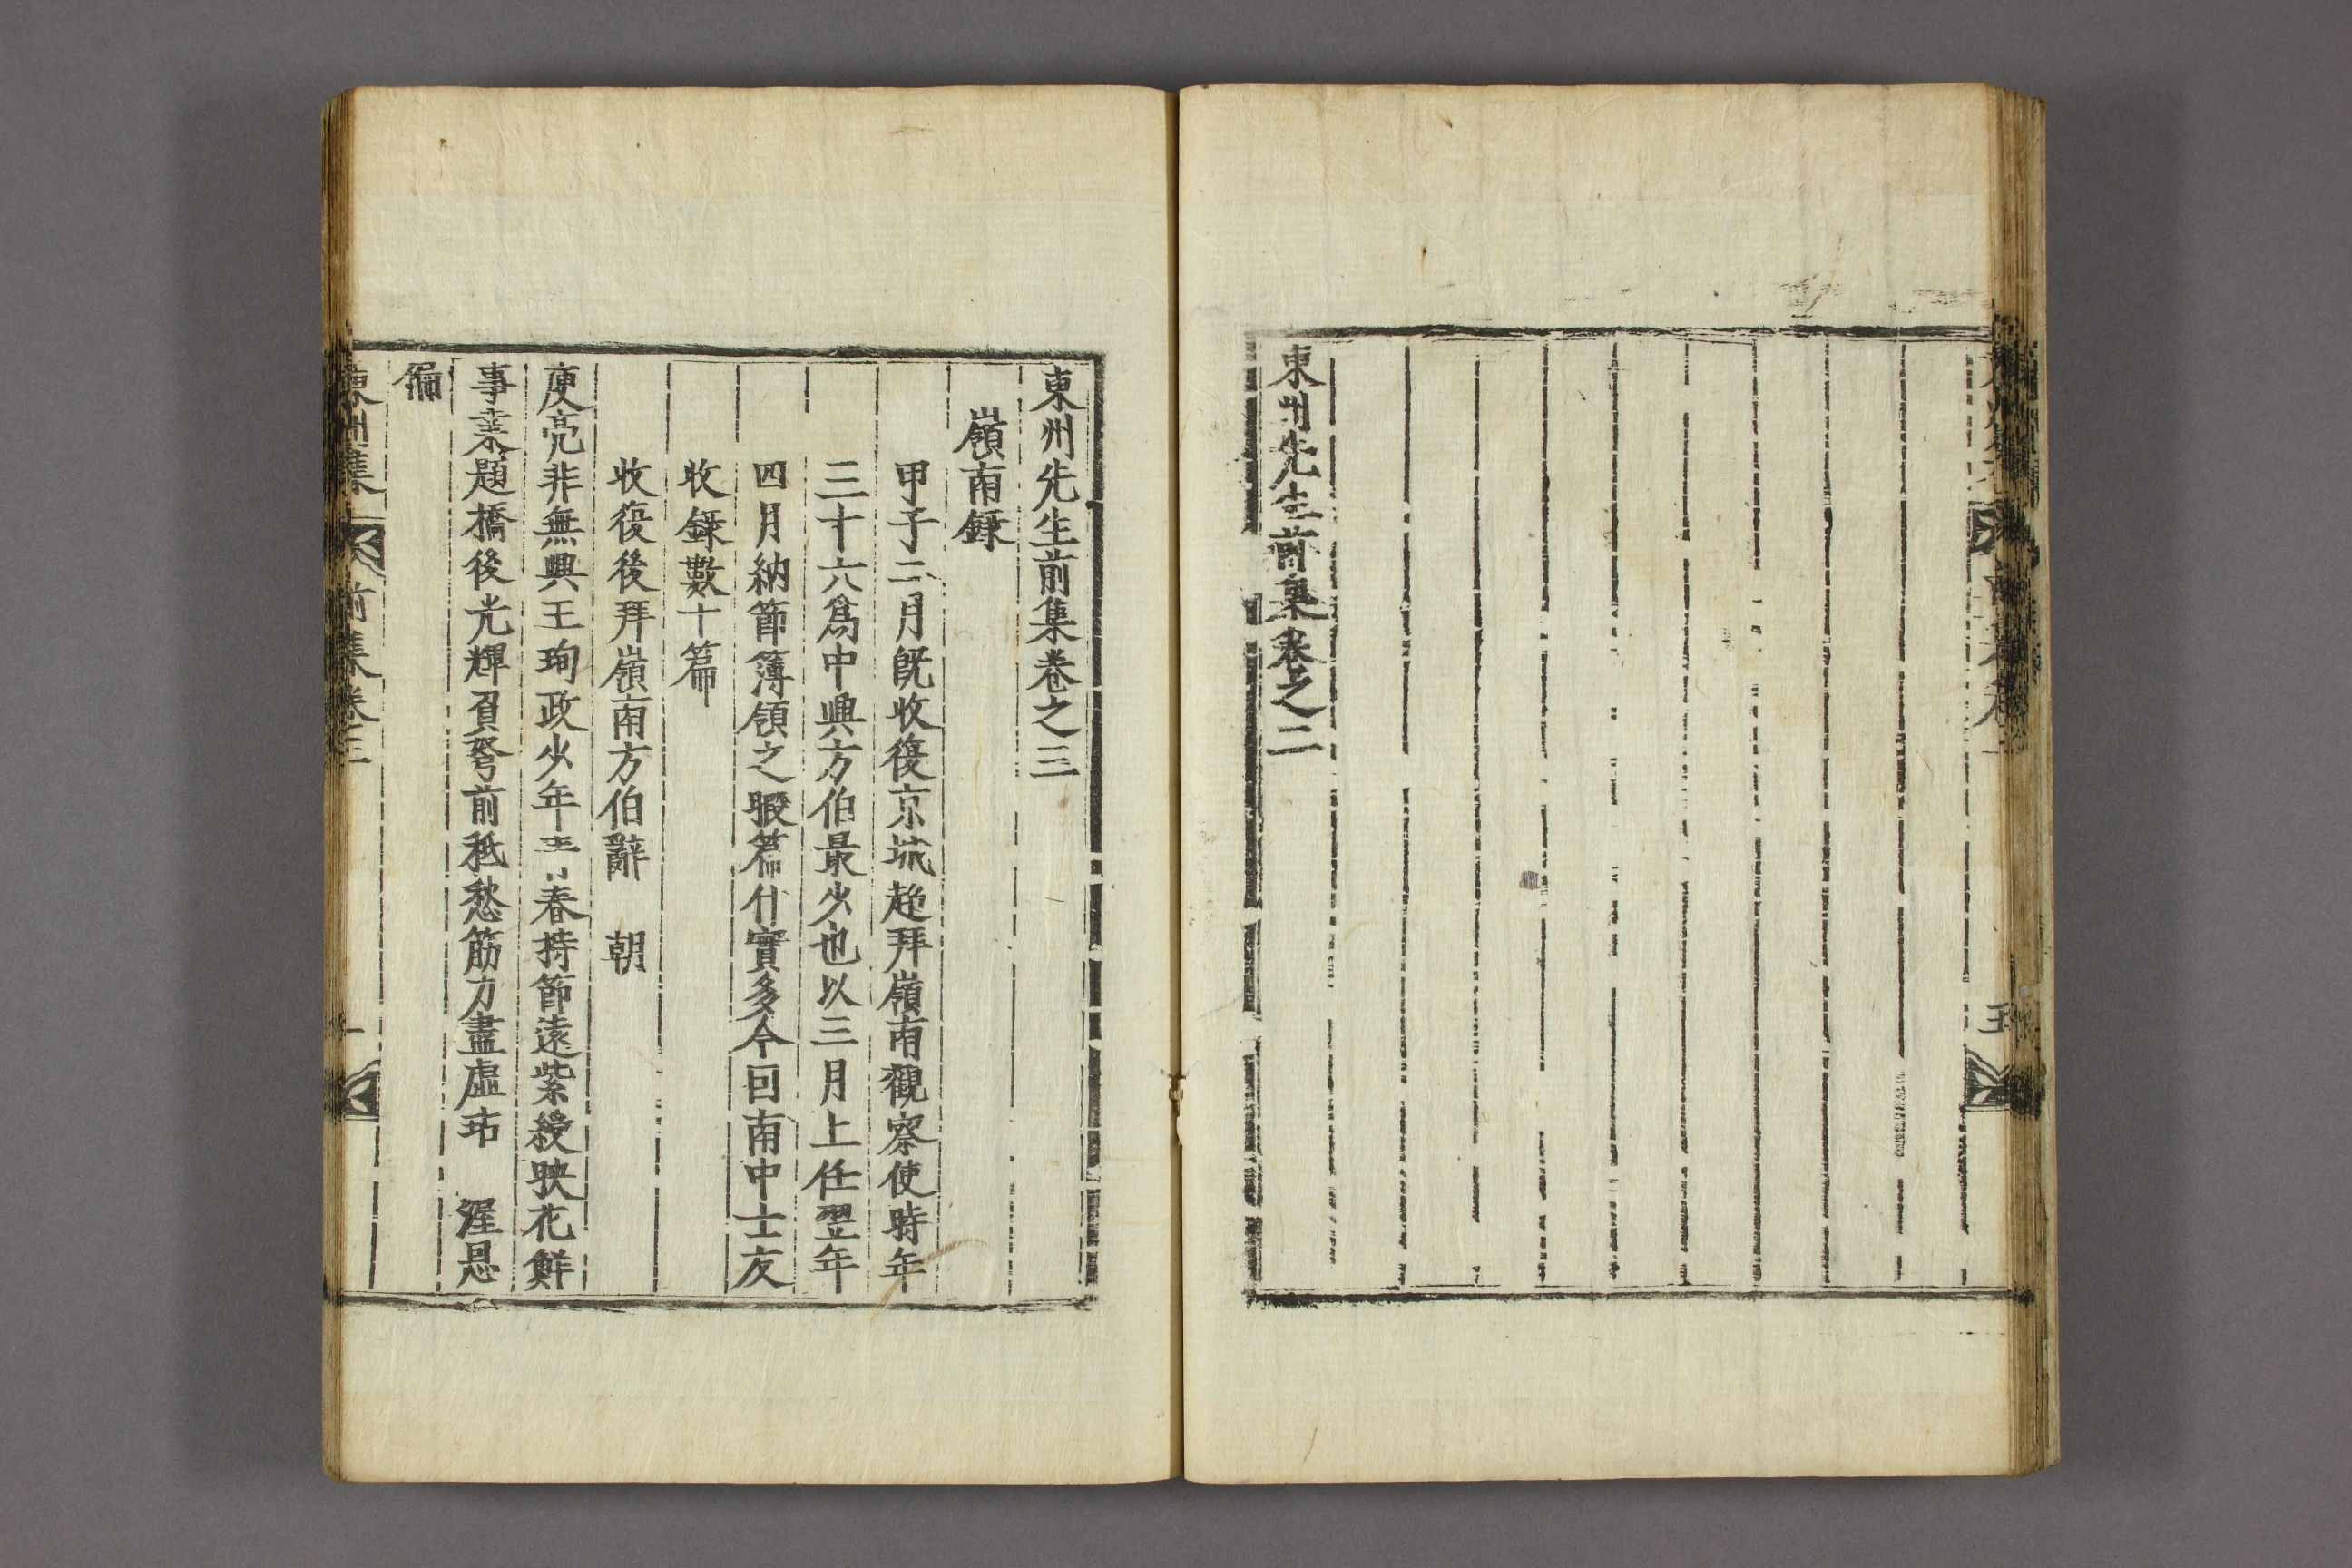 東州先生前集卷之二
東州先生前集卷之三
嶺南錄
甲子二月旣收復京城趍拜嶺南觀察使時年
三十六爲中興方伯最少也以三月上任翌年
四月納節簿領之暇篇什實多今回南中士友
收錄數十篇
收復後拜嶺南方伯辭　朝
庾亮非無興王珣政少年　春持節遠紫綬映花鮮
事業題橋後光輝負弩前秖愁筋力盡虛　渥恩
偏
東州集　前集卷三　一